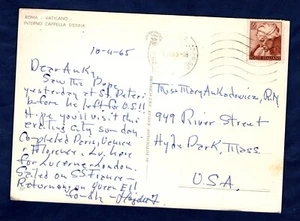 ROMA - VATICANO -
INTERNO CAPPELLA SISTINA
10-4-65
Dear Ank,
Saw the Pope
yesterday at St. Peter's
before he left for U.S.!!
Hope you'll visit this
exciting city someday.
Completed Paris, Venice
& Florence. Lv. here
for Lucerne-London.
Sailed on SS France -
Returning on Queen Eliz
Fondly
Miss Mary Ankadovicz, R.N.
949 River Street
Hyde Park, Mass
U.S.A.